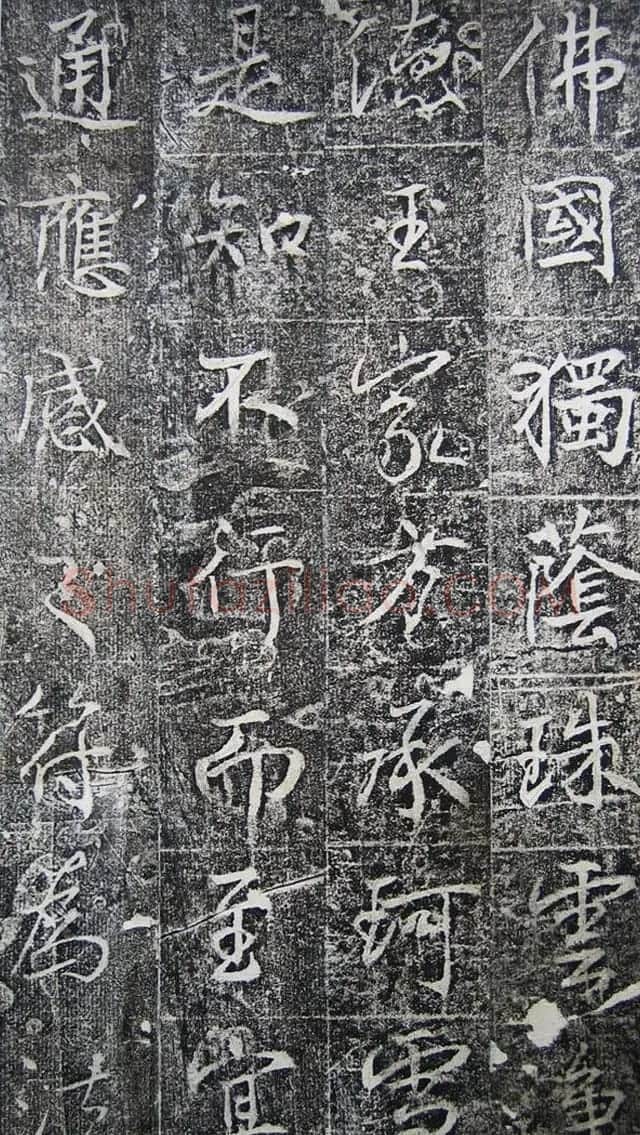 佛國獨蔭珠雲
德玉家芳承珂雪
是知不行而至宜
通應感之符為法
Shufaziliao.com